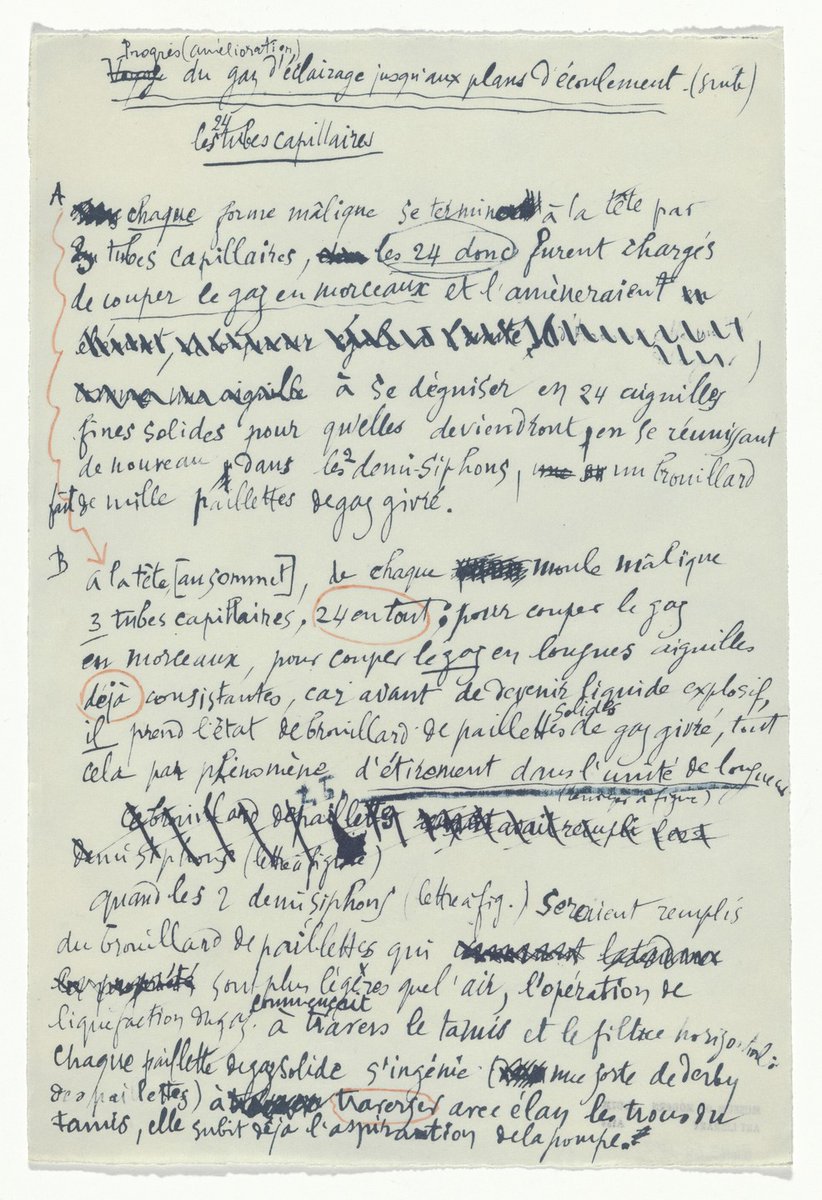 Progrès (amélioration)
Voyage du gaz d'éclairage jusqu'aux plans d'écoulement. (suite)
les 24 tubes capillaires
A
chaque forme mâlique se termine à la tête par
tubes capillaires, les 24 donc furent chargés
de couper le gaz en morceaux et l'amèneraient
comme une aiguille à se déguiser en 24 aiguilles
fines solides pour qu'elles deviendront, en se réunissant
de nouveau, dans les 2 demi-siphons, un brouillard
fait de mille paillettes de gaz givré.
B
à la tête [au sommet], de chaque moule mâlique
3 tubes capillaires, 24 en tout; pour couper le gaz
en morceaux, pour couper le gaz en longues aiguilles
déjà consistantes, car avant de devenir liquide explosif,
il prend l'état de brouillard de paillettes solides de gaz givré, tout
cela par phénomène d'étirement dans l'unité de longueur
(renvoi à figure)
ce brouillard de paillettes ayant rempli les 2
demi siphons (lettre à figure)
quand les 2 demi siphons (lettre à fig.) seraient remplis
du brouillard de paillettes qui
sont plus légères que l'air, l'opération de
liquéfaction du gaz commençait à travers le tamis et le filtre horizontal:
chaque paillette de gaz solide s'ingénie (une sorte de derby
des paillettes) à traverser avec élan les trous du
tamis, elle subit déjà l'aspiration de la pompe.